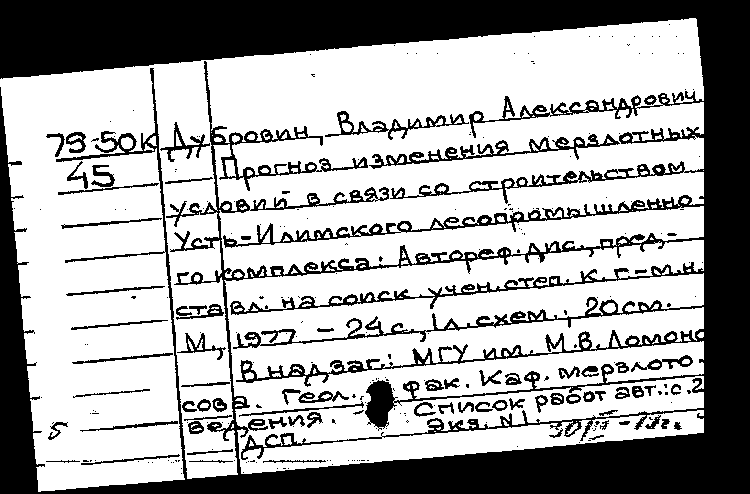 79-50К Дубровин, Владимир Александрович
45 Прогноз изменения мерзлотных
условий в связи со строительством
Усть-Илимского лесопромышленно-
го комплекса: Автореф. дис., пред-
ставл. на соиск. учен. степ. к. г.-м.н.
М., 1977 – 24 с., 1 л. схем.; 20 см.
В надзаг.: МГУ им. М.В. Ломоно
сова. Геол. фак. Каф. мерзлото-
ведения. Список работ авт.: с. 2
5 ДСП. Экз. N1.